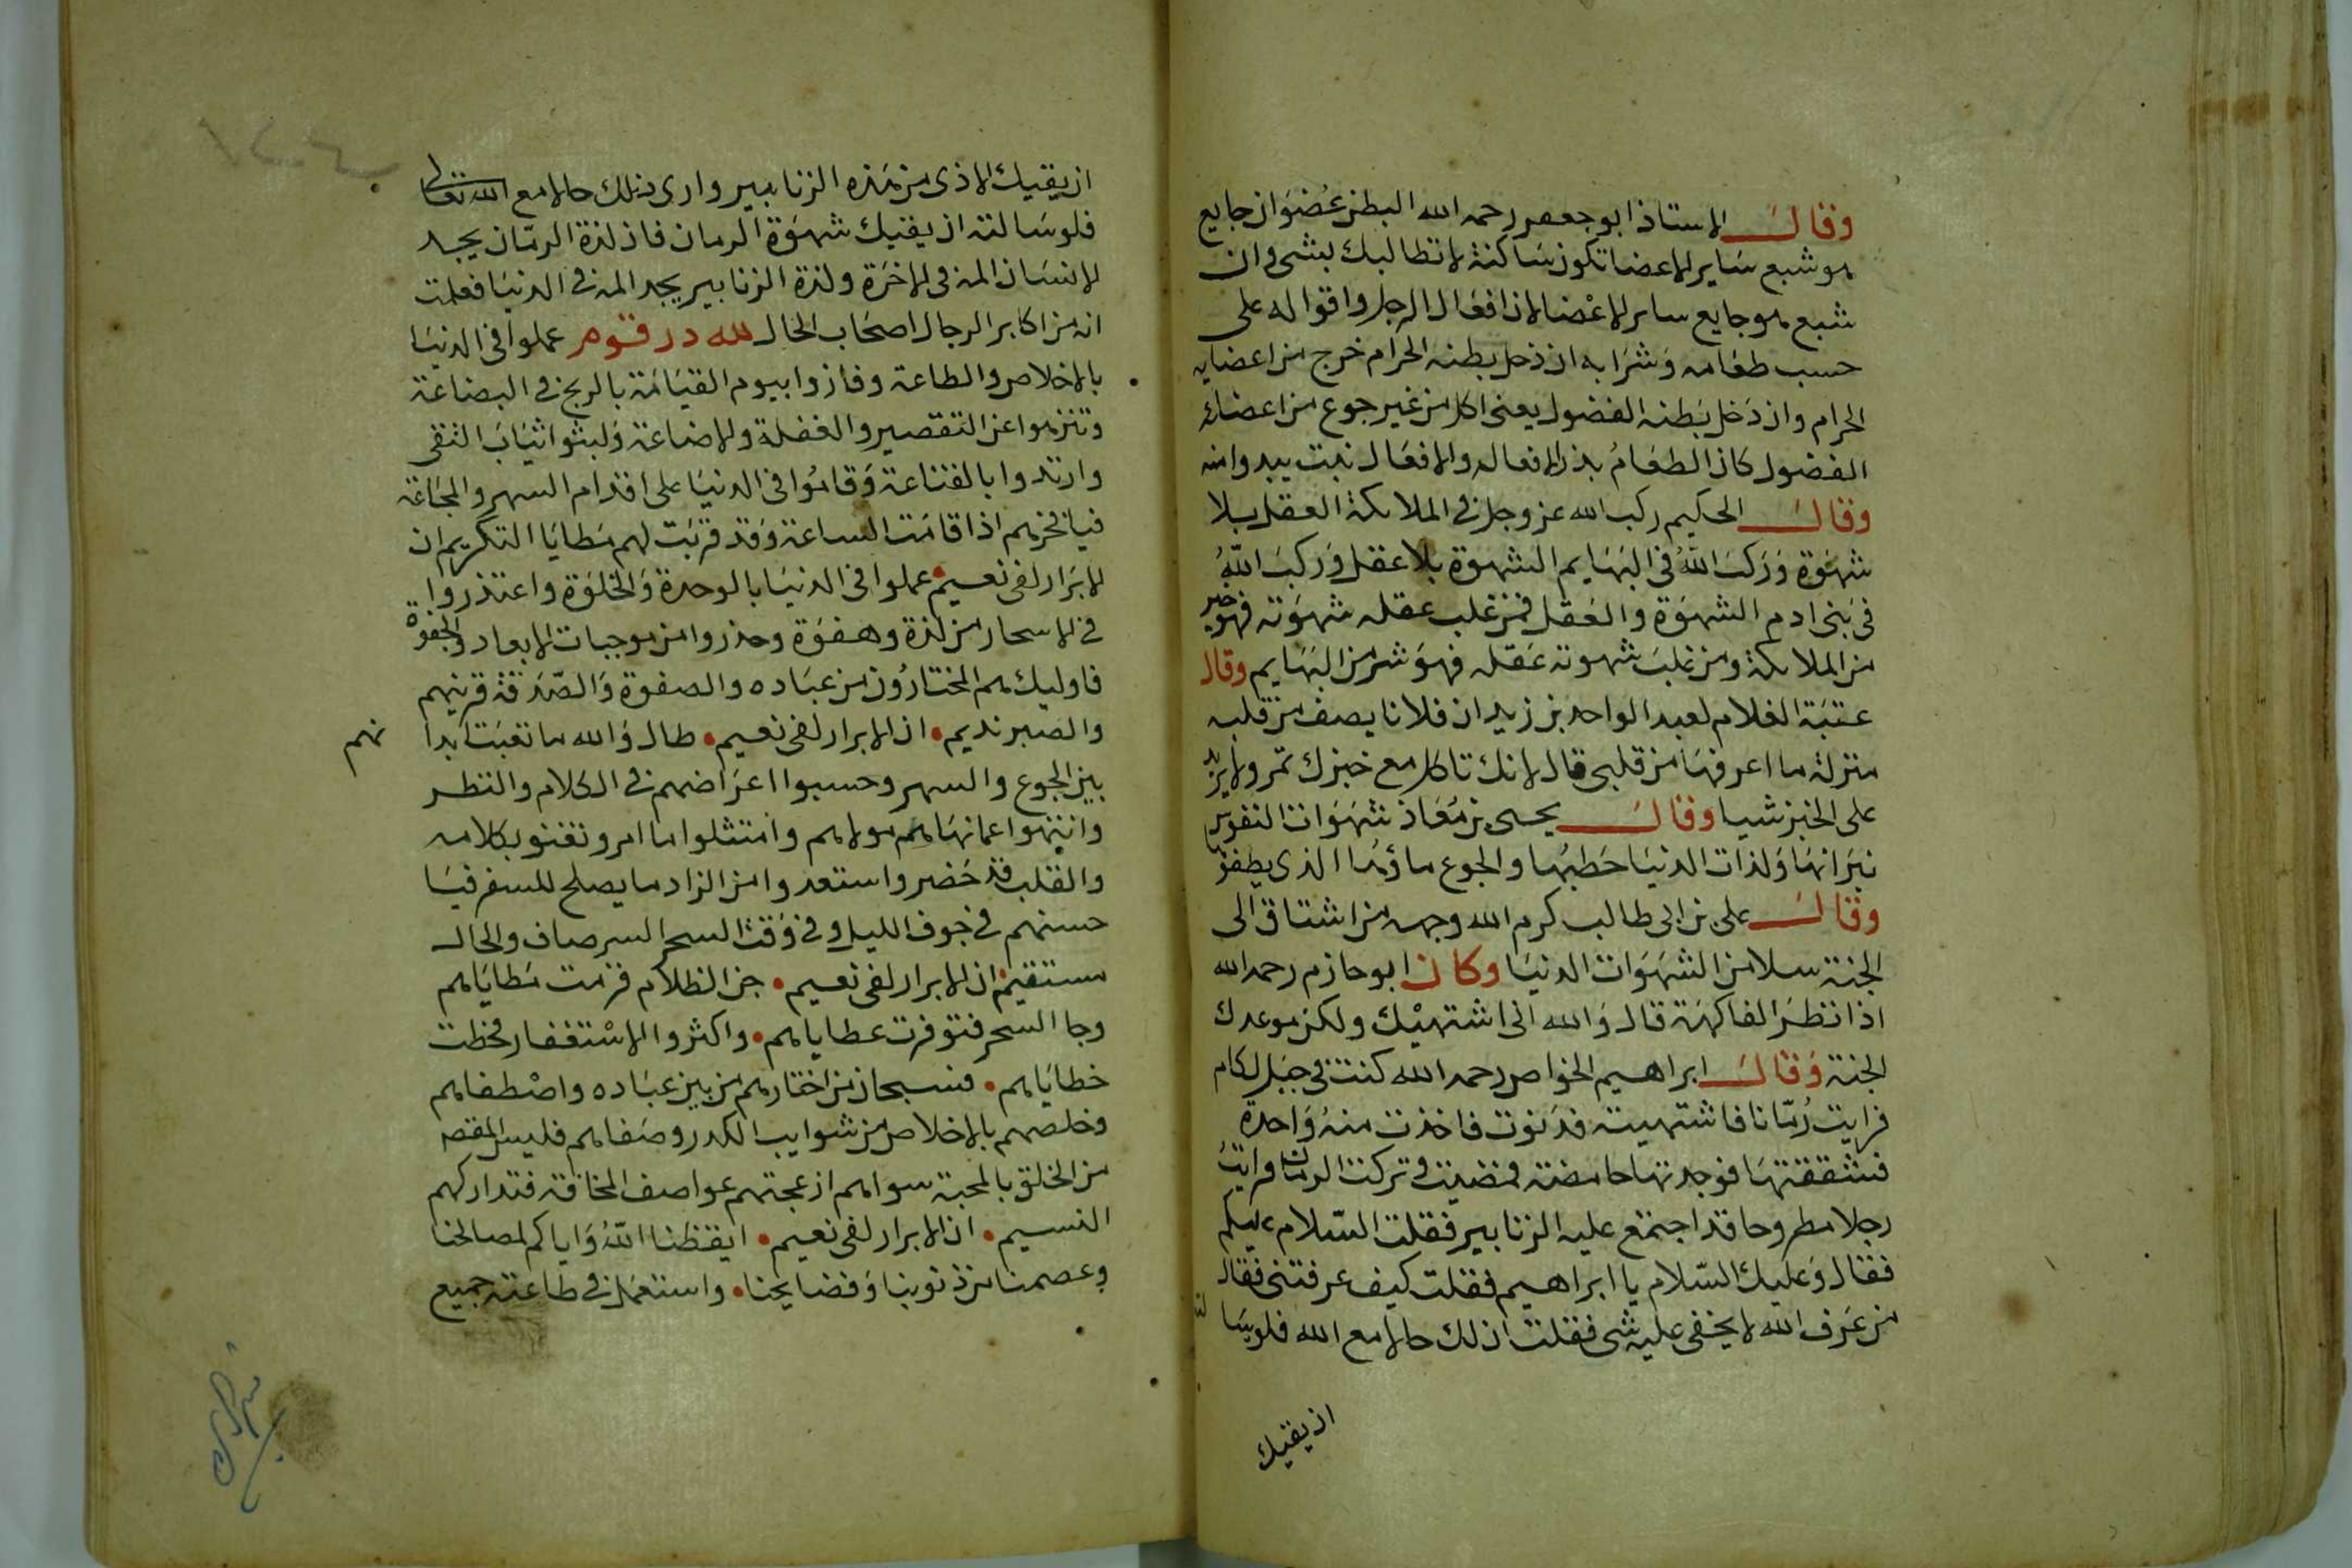 وقال الاستاذ ابو جعفر رحمه الله البطن عضو ان جايع
هو شبع ساير الاعضا تكون ساكنة لا تطالبك بشى وان
شبع هو جايع ساير الاعضا لان افعال الرجل واقواله على
حسب طعامه وشرابه ان دخل بطنه الحرام خرج من اعضايه
الحرام وان دخل بطنه الفضول يعنى اكل من غير جوع من اعضائه
الفضول كان الطعام بذر الافعال والافعال نبت يبدوا منه
وقال الحكيم ركب الله عز وجل فى الملائكة العقل بلا
شهوة وركب الله فى البهايم الشهوة بلا عقل وركب الله
فى بنى ادم الشهوة والعقل فمن غلب عقله شهوته فهو خير
من الملائكة ومن غلب شهوته عقله فهو شر من البهايم وقال
عتبة الغلام لعبد الواحد بن زيد ان فلانا يصف من قلبه
منزلة ما اعرفها من قلبى قال لانك تاكل مع خبزك تمر ولا يزيد
على الخبز شيا وقال يحيى بن معاذ شهوات النفوس
نيرانها ولذات الدنيا حطبها والجوع ماؤها الذى يطفؤها
وقال على بن ابى طالب كرم الله وجهه من اشتاق الى
الجنة سلا من الشهوات الدنيا وكان ابو حازم رحمه الله
اذا نظر الفاكهة قال والله انى اشتهيك ولكن موعدك
الجنة وقال ابراهيم الخواص رحمه الله كنت فى جبل لكام
فرايت رمانا فاشتهيته فدنوت فاخذت منه واحدة
فشققتها فوجدتها حامضة فمضيت وتركت الرمان فرايت
رجلا مطروحا قد اجتمع عليه الزنابير فقلت السلام عليكم
فقال وعليك السلام يا ابراهيم فقلت كيف عرفتنى فقال لنا
من عرف الله لا يخفى عليه شى فقلت ان لك حالا مع الله فلو سا
ان يقيك
ان يقيك الاذى من هذه الزنابير وارى ذلك حالا مع الله تعالى
فلو سالته ان يقيك شهوة الرمان فان لذة الرمان يجد
الانسان المه فى الاخرة ولذة الزنابير يجد المه فى الدنيا فعلمت
انه من اكابر الرجال اصحاب الحال لله در قوم عملوا فى الدنيا
بالاخلاص والطاعة وفازوا بيوم القيامة بالربح فى البضاعة
وتنزهوا عن التقصير والغفلة والاضاعة ولبثوا ثياب التقى
وارتدوا بالقناعة وقاموا فى الدنيا على اقدام السهر والمجاعة
فيا فخرهم اذا قامت الساعة وقد قربت لهم مطايا التكريم ان
الابرار لفى نعيم عملوا فى الدنيا بالوحدة والخلوة واعتذروا
فى الاسحار من لذة وهفوة وحذروا من موجبات الابعاد والجفوة
فاوليك هم المختارون من عباده والصفوة والصدقة قرينهم
والصبر نديم ان الابرار لفى نعيم طال والله ما تعبت ابدا
نهم
بين الجوع والسهر وحسبوا اعراضهم فى الكلام والنظر
وانتهوا عما نهاهم مولاهم وامتثلوا ما امر وتغنو بكلامه
والقلب قد حضر واستعدوا من الزاد ما يصلح للسفر فيا
حسنهم فى جوف الليل وفى وقت السحر السر صاف والحال
مستقيم ان الابرار لفى نعيم جن الظلام فزمت مطاياهم
وجا السحر فتوفرت عطاياهم واكثروا الاستغفار فحطت
خطاياهم فسبحان من اختارهم من بين عباده واصطفاهم
وخلصهم بالاخلاص من شوايب الكدر وصفاهم فليس المقصد
من الخلق بالمحبة سواهم ازعجتهم عواصف المخافة فتداركهم
النسيم ان الابرار لفى نعيم ايقظنا الله واياكم لمصالحنا
وعصمنا من ذنوبنا وفضايحنا واستعمل فى طاعته جميع